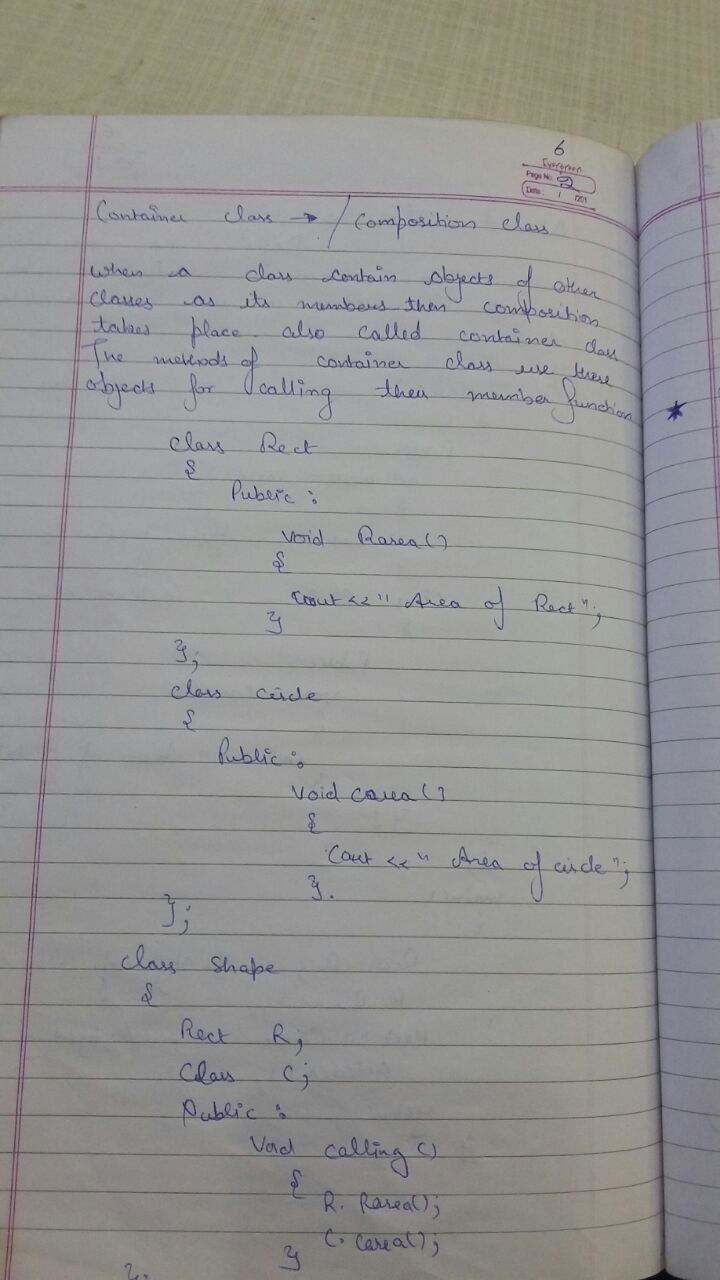 6
Evergreen
Page No. 2
Date: / /201
Container class → / Composition class
When a class contain objects of other
classes as its members then composition
takes place also called container class
The methods of container class use these
objects for calling their member function
class Rect
{
Public :
void Rarea()
{
Cout << " Area of Rect";
}
};
class circle
{
Public :
void carea()
{
Cout << " Area of circle";
}.
};
class shape
{
Rect R;
Class C;
Public :
Void calling ()
{
R. Rarea();
C. Carea();
}
};